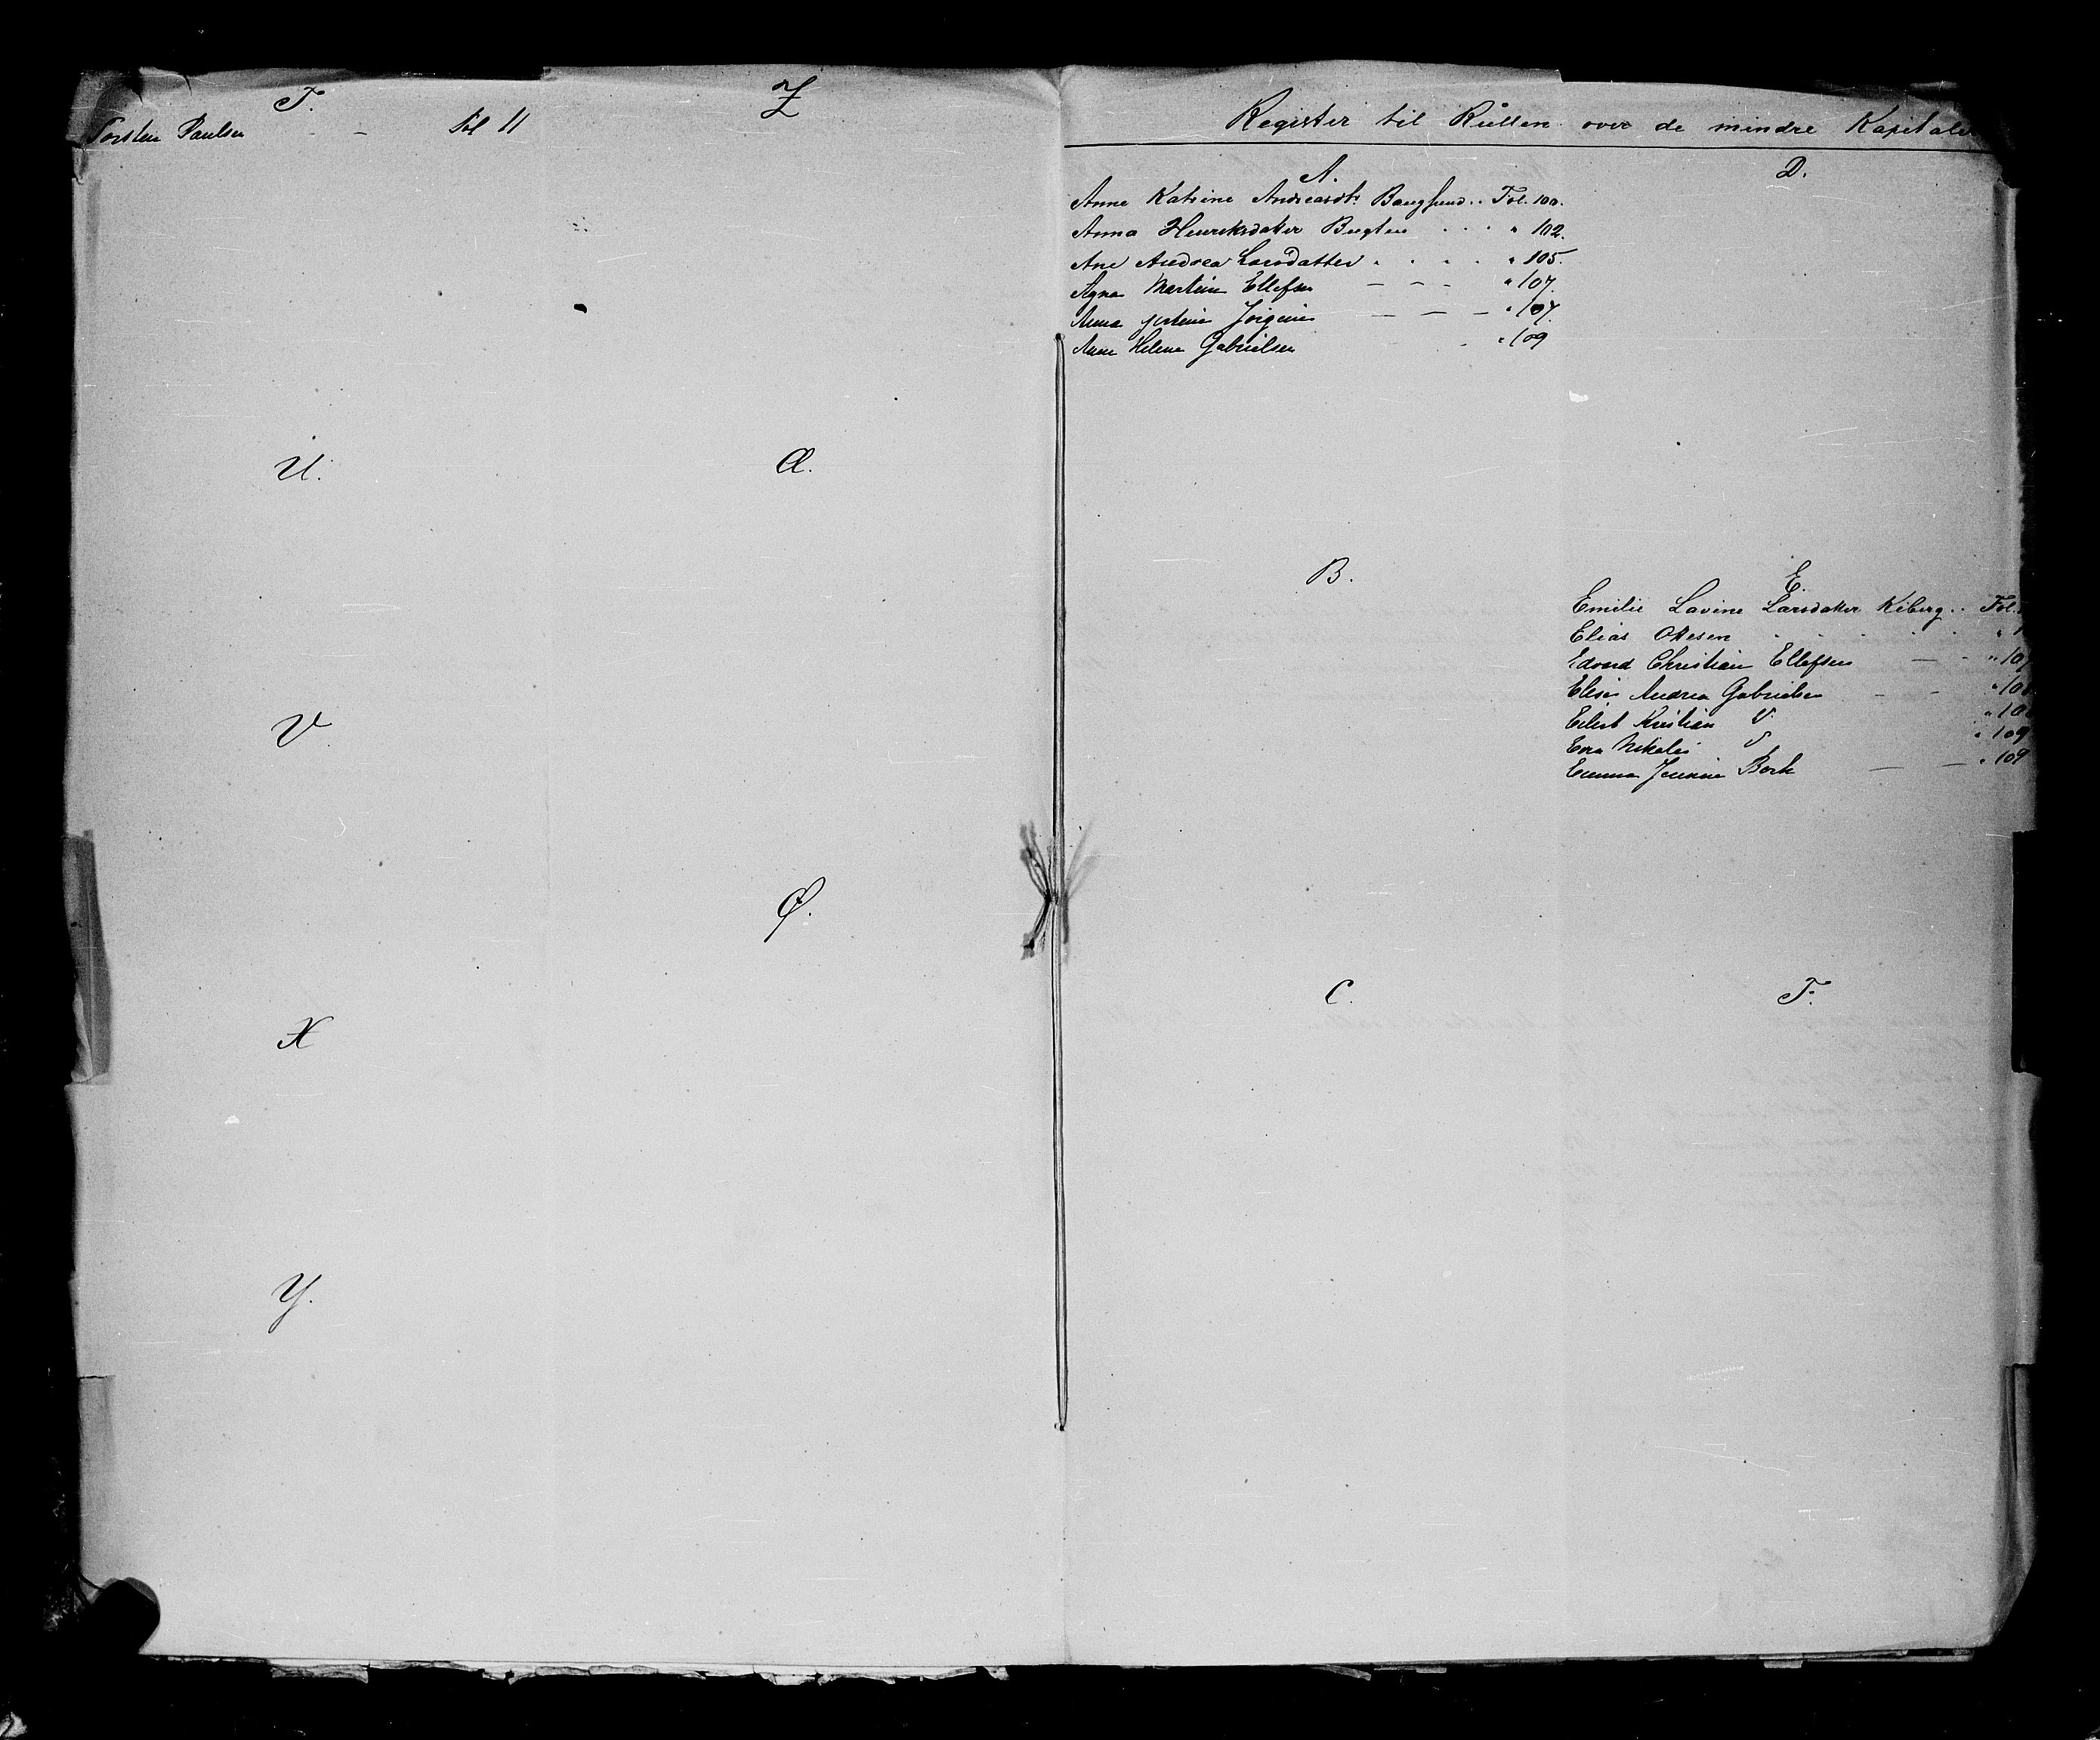 T.
Torsten Paulsen - - Fol 11
U.
V.
X
Y.
Z
Æ.
Ø.
Register til Rullen over de mindre Kapitaler
A.
Anne Katrine Andreasdt. Bangsund .. Fol. 100.
Anna Henriksdatter Bugten . . . " 102.
Ane Andrea Larsdatter . . . . " 105.
Agna Martine Ellefsen - - - " 107.
Anna Jørgine - - - " 107.
Anne Helene Gabrielsen " 109
B.
C.
D.
E.
Emilie Lavine Larsdatter Kiberg .. Fol.
Elias Ottesen . . . . . "
Edvard Christian Ellefsen - - " 107
Elise Andrea Gabrielsen - - " 10
Eilert Kristian " 10
Eva Nikolai " 109
Emma Jensine Bork - - " 109
F.